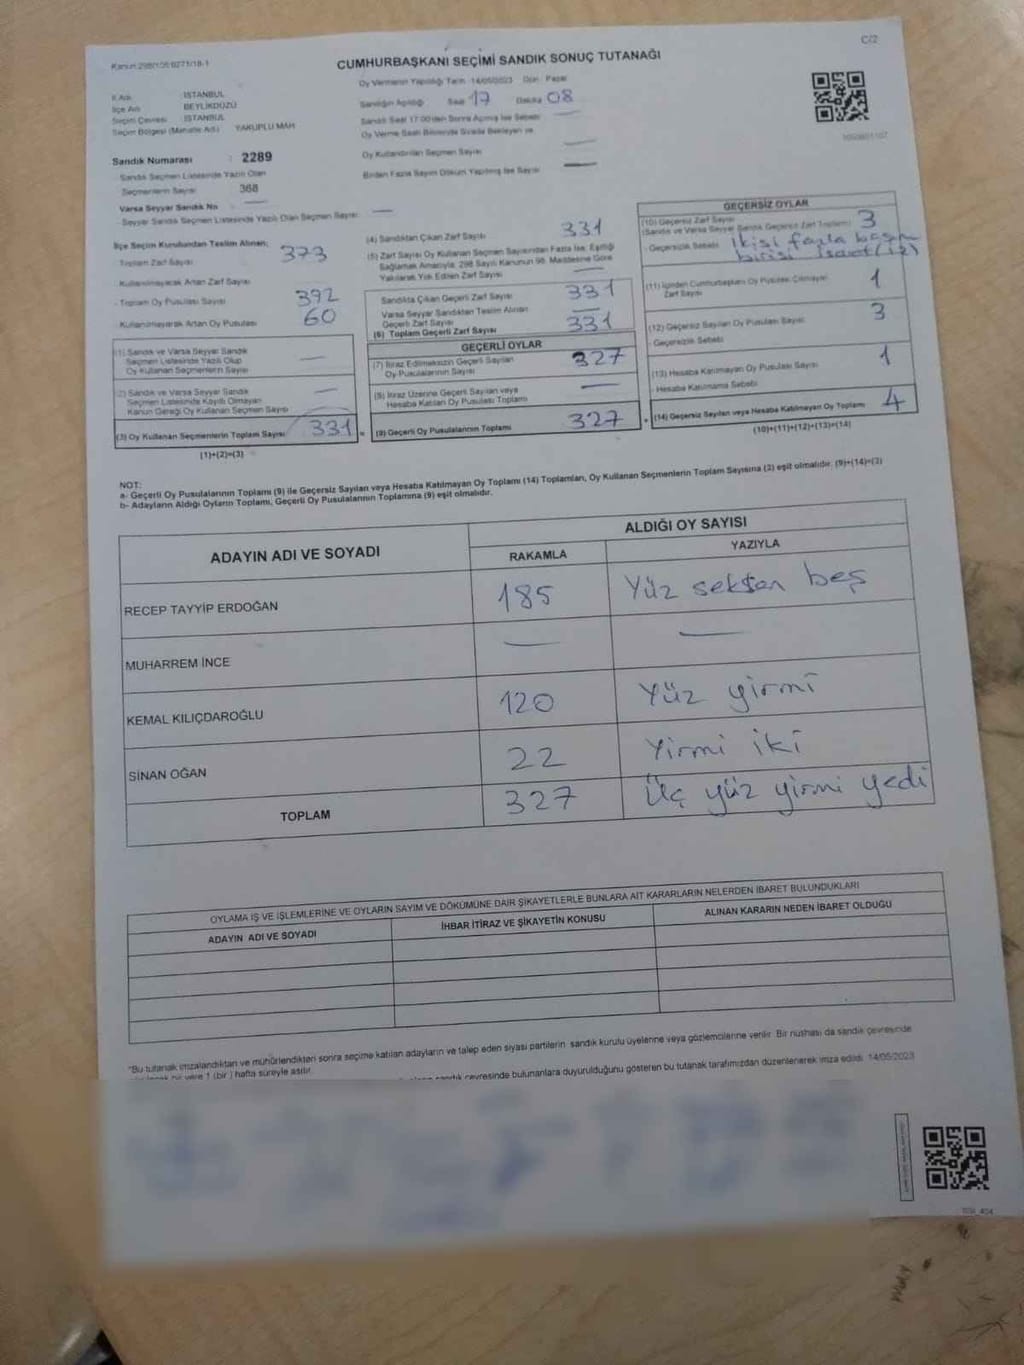 C/2
Kanun:298/106 6271/18-1
CUMHURBAŞKANI SEÇİMİ SANDIK SONUÇ TUTANAĞI
Oy Vermenin Yapıldığı Tarih 14/05/2023 Gün Pazar
İl Adı İSTANBUL
İlçe Adı BEYLİKDÜZÜ
Seçim Çevresi İSTANBUL
Seçim Bölgesi (Mahalle Adı) YAKUPLU MAH
Sandığın Açıldığı Saat 17 Dakika 08
Sandık Saat 17:00'den Sonra Açılmış İse Sebebi
Oy Verme Saati Bitiminde Sırada Bekleyen ve
Oy Kullandırılan Seçmen Sayısı
Birden Fazla Sayım Döküm Yapılmış İse Sayısı
Sandık Numarası : 2289
Sandık Seçmen Listesinde Yazılı Olan
Seçmenlerin Sayısı 368
Varsa Seyyar Sandık No
- Seyyar Sandık Seçmen Listesinde Yazılı Olan Seçmen Sayısı
İlçe Seçim Kurulundan Teslim Alınan;
Toplam Zarf Sayısı 373
- Kullanılmayarak Artan Zarf Sayısı
- Toplam Oy Pusulası Sayısı 392
- Kullanılmayarak Artan Oy Pusulası 60
(1) Sandık ve Varsa Seyyar Sandık
Seçmen Listesinde Yazılı Olup
Oy Kullanan Seçmenlerin Sayısı —
(2) Sandık ve Varsa Seyyar Sandık
Seçmen Listesinde Kayıtlı Olmayan
Kanun Gereği Oy Kullanan Seçmen Sayısı —
(3) Oy Kullanan Seçmenlerin Toplam Sayısı 331
(1)+(2)=(3)
(4) Sandıktan Çıkan Zarf Sayısı 331
(5) Zarf Sayısı Oy Kullanan Seçmen Sayısından Fazla İse, Eşitliği
Sağlamak Amacıyla, 298 Sayılı Kanunun 98. Maddesine Göre
Yakılarak Yok Edilen Zarf Sayısı —
Sandıkta Çıkan Geçerli Zarf Sayısı 331
Varsa Seyyar Sandıktan Teslim Alınan
Geçerli Zarf Sayısı —
(6) Toplam Geçerli Zarf Sayısı 331
GEÇERLİ OYLAR
(7) İtiraz Edilmeksizin Geçerli Sayılan
Oy Pusulalarının Sayısı 327
(8) İtiraz Üzerine Geçerli Sayılan veya
Hesaba Katılan Oy Pusulası Toplamı —
= (9) Geçerli Oy Pusulalarının Toplamı 327
GEÇERSİZ OYLAR
(10) Geçersiz Zarf Sayısı 3
(Sandık ve Varsa Seyyar Sandık Geçersiz Zarf Toplamı)
- Geçersizlik Sebebi: ikisi fazla
birisi
(11) İçinden Cumhurbaşkanı Oy Pusulası Çıkmayan
Zarf Sayısı 1
(12) Geçersiz Sayılan Oy Pusulası Sayısı 3
- Geçersizlik Sebebi
(13) Hesaba Katılmayan Oy Pusulası Sayısı 1
- Hesaba Katılmama Sebebi
+ (14) Geçersiz Sayılan veya Hesaba Katılmayan Oy Toplamı 4
(10)+(11)+(12)+(13)=(14)
NOT:
a- Geçerli Oy Pusulalarının Toplamı (9) ile Geçersiz Sayılan veya Hesaba Katılmayan Oy Toplamı (14) Toplamları, Oy Kullanan Seçmenlerin Toplam Sayısına (3) eşit olmalıdır. (9)+(14)=(3)
b- Adayların Aldığı Oyların Toplamı, Geçerli Oy Pusulalarının Toplamına (9) eşit olmalıdır.
ADAYIN ADI VE SOYADI
ALDIĞI OY SAYISI
RAKAMLA YAZIYLA
RECEP TAYYİP ERDOĞAN 185 Yüz seksen beş
MUHARREM İNCE — —
KEMAL KILIÇDAROĞLU 120 Yüz yirmi
SİNAN OĞAN 22 Yirmi iki
TOPLAM 327 Üç yüz yirmi yedi
OYLAMA İŞ VE İŞLEMLERİNE VE OYLARIN SAYIM VE DÖKÜMÜNE DAİR ŞİKAYETLERLE BUNLARA AİT KARARLARIN NELERDEN İBARET BULUNDUKLARI
ADAYIN ADI VE SOYADI İHBAR İTİRAZ VE ŞİKAYETİN KONUSU ALINAN KARARIN NEDEN İBARET OLDUĞU
*Bu tutanak imzalandıktan ve mühürlendikten sonra seçime katılan adayların ve talep eden siyasi partilerin sandık kurulu üyelerine veya gözlemcilerine verilir. Bir nüshası da sandık çevresinde
bir yere 1 (bir) hafta süreyle asılır.
sandık çevresinde bulunanlara duyurulduğunu gösteren bu tutanak tarafımızdan düzenlenerek imza edildi. 14/05/2023